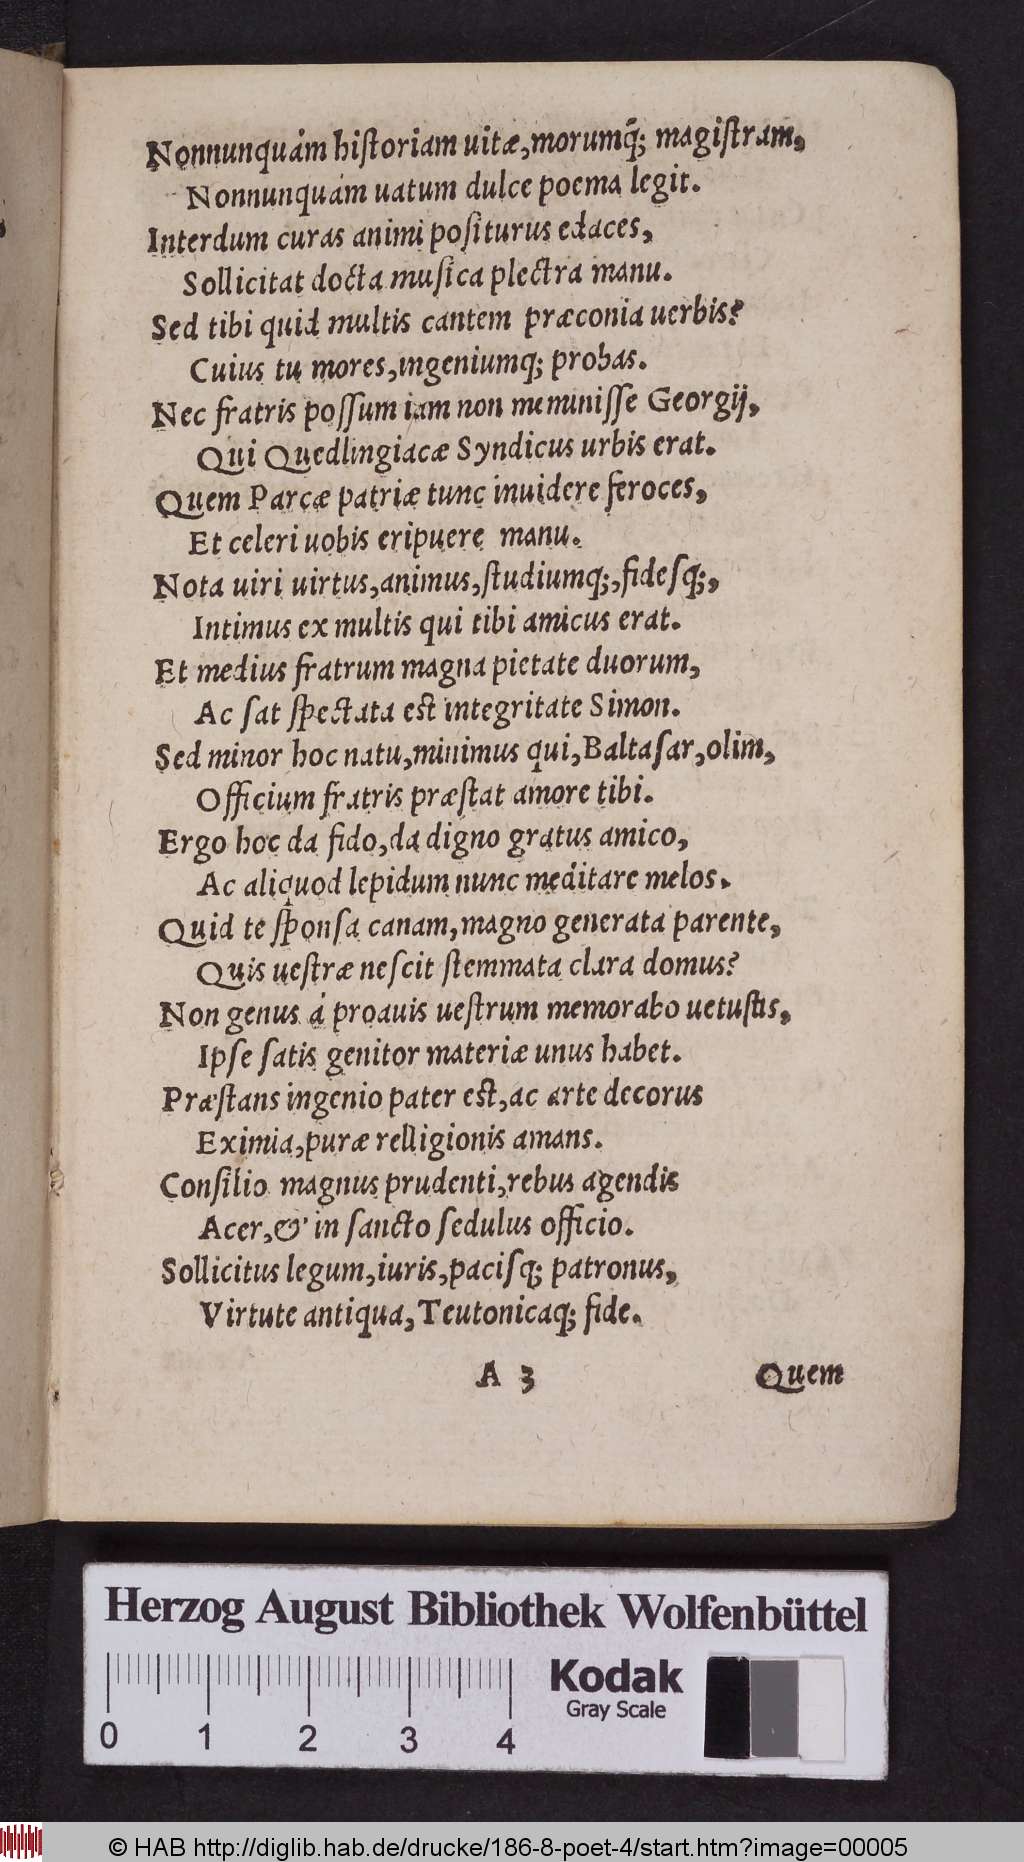 Nonnunquàm hiſtoriam uitæ, morumq́; magiſtram,
Nonnunquàm uatum dulce poema legit.
Interdum curas animi poſiturus edaces,
Sollicitat docta muſica plectra manu.
Sed tibi quid multis cantem præconia uerbis?
Cuius tu mores, ingeniumq; probas.
Nec fratris poſſum iam non meminiſſe Georgij,
Qui Quedlingiacæ Syndicus urbis erat.
Quem Parcæ patriæ tunc inuidere feroces,
Et celeri uobis eripuere manu.
Nota uiri uirtus, animus, ſtudiumq;, fideſq;,
Intimus ex multis qui tibi amicus erat.
Et medius fratrum magna pietate duorum,
Ac ſat ſpectata eſt integritate Simon.
Sed minor hoc natu, minimus qui, Baltaſar, olim,
Officium fratris præſtat amore tibi.
Ergo hoc da fido, da digno gratus amico,
Ac aliquod lepidum nunc meditare melos.
Quid te ſponſa canam, magno generata parente,
Quis ueſtræ neſcit ſtemmata clara domus?
Non genus á proauis ueſtrum memorabo uetuſtis,
Ipſe ſatis genitor materiæ unus habet.
Præſtans ingenio pater eſt, ac arte decorus
Eximia, puræ relligionis amans.
Conſilio magnus prudenti, rebus agendis
Acer, & in ſancto ſedulus officio.
Sollicitus legum, iuris, paciſq; patronus,
Virtute antiqua, Teutonicaq; fide.
A 3 Quem
Herzog August Bibliothek Wolfenbüttel
Kodak
Gray Scale
0 1 2 3 4
© HAB http://diglib.hab.de/drucke/186-8-poet-4/start.htm?image=00005